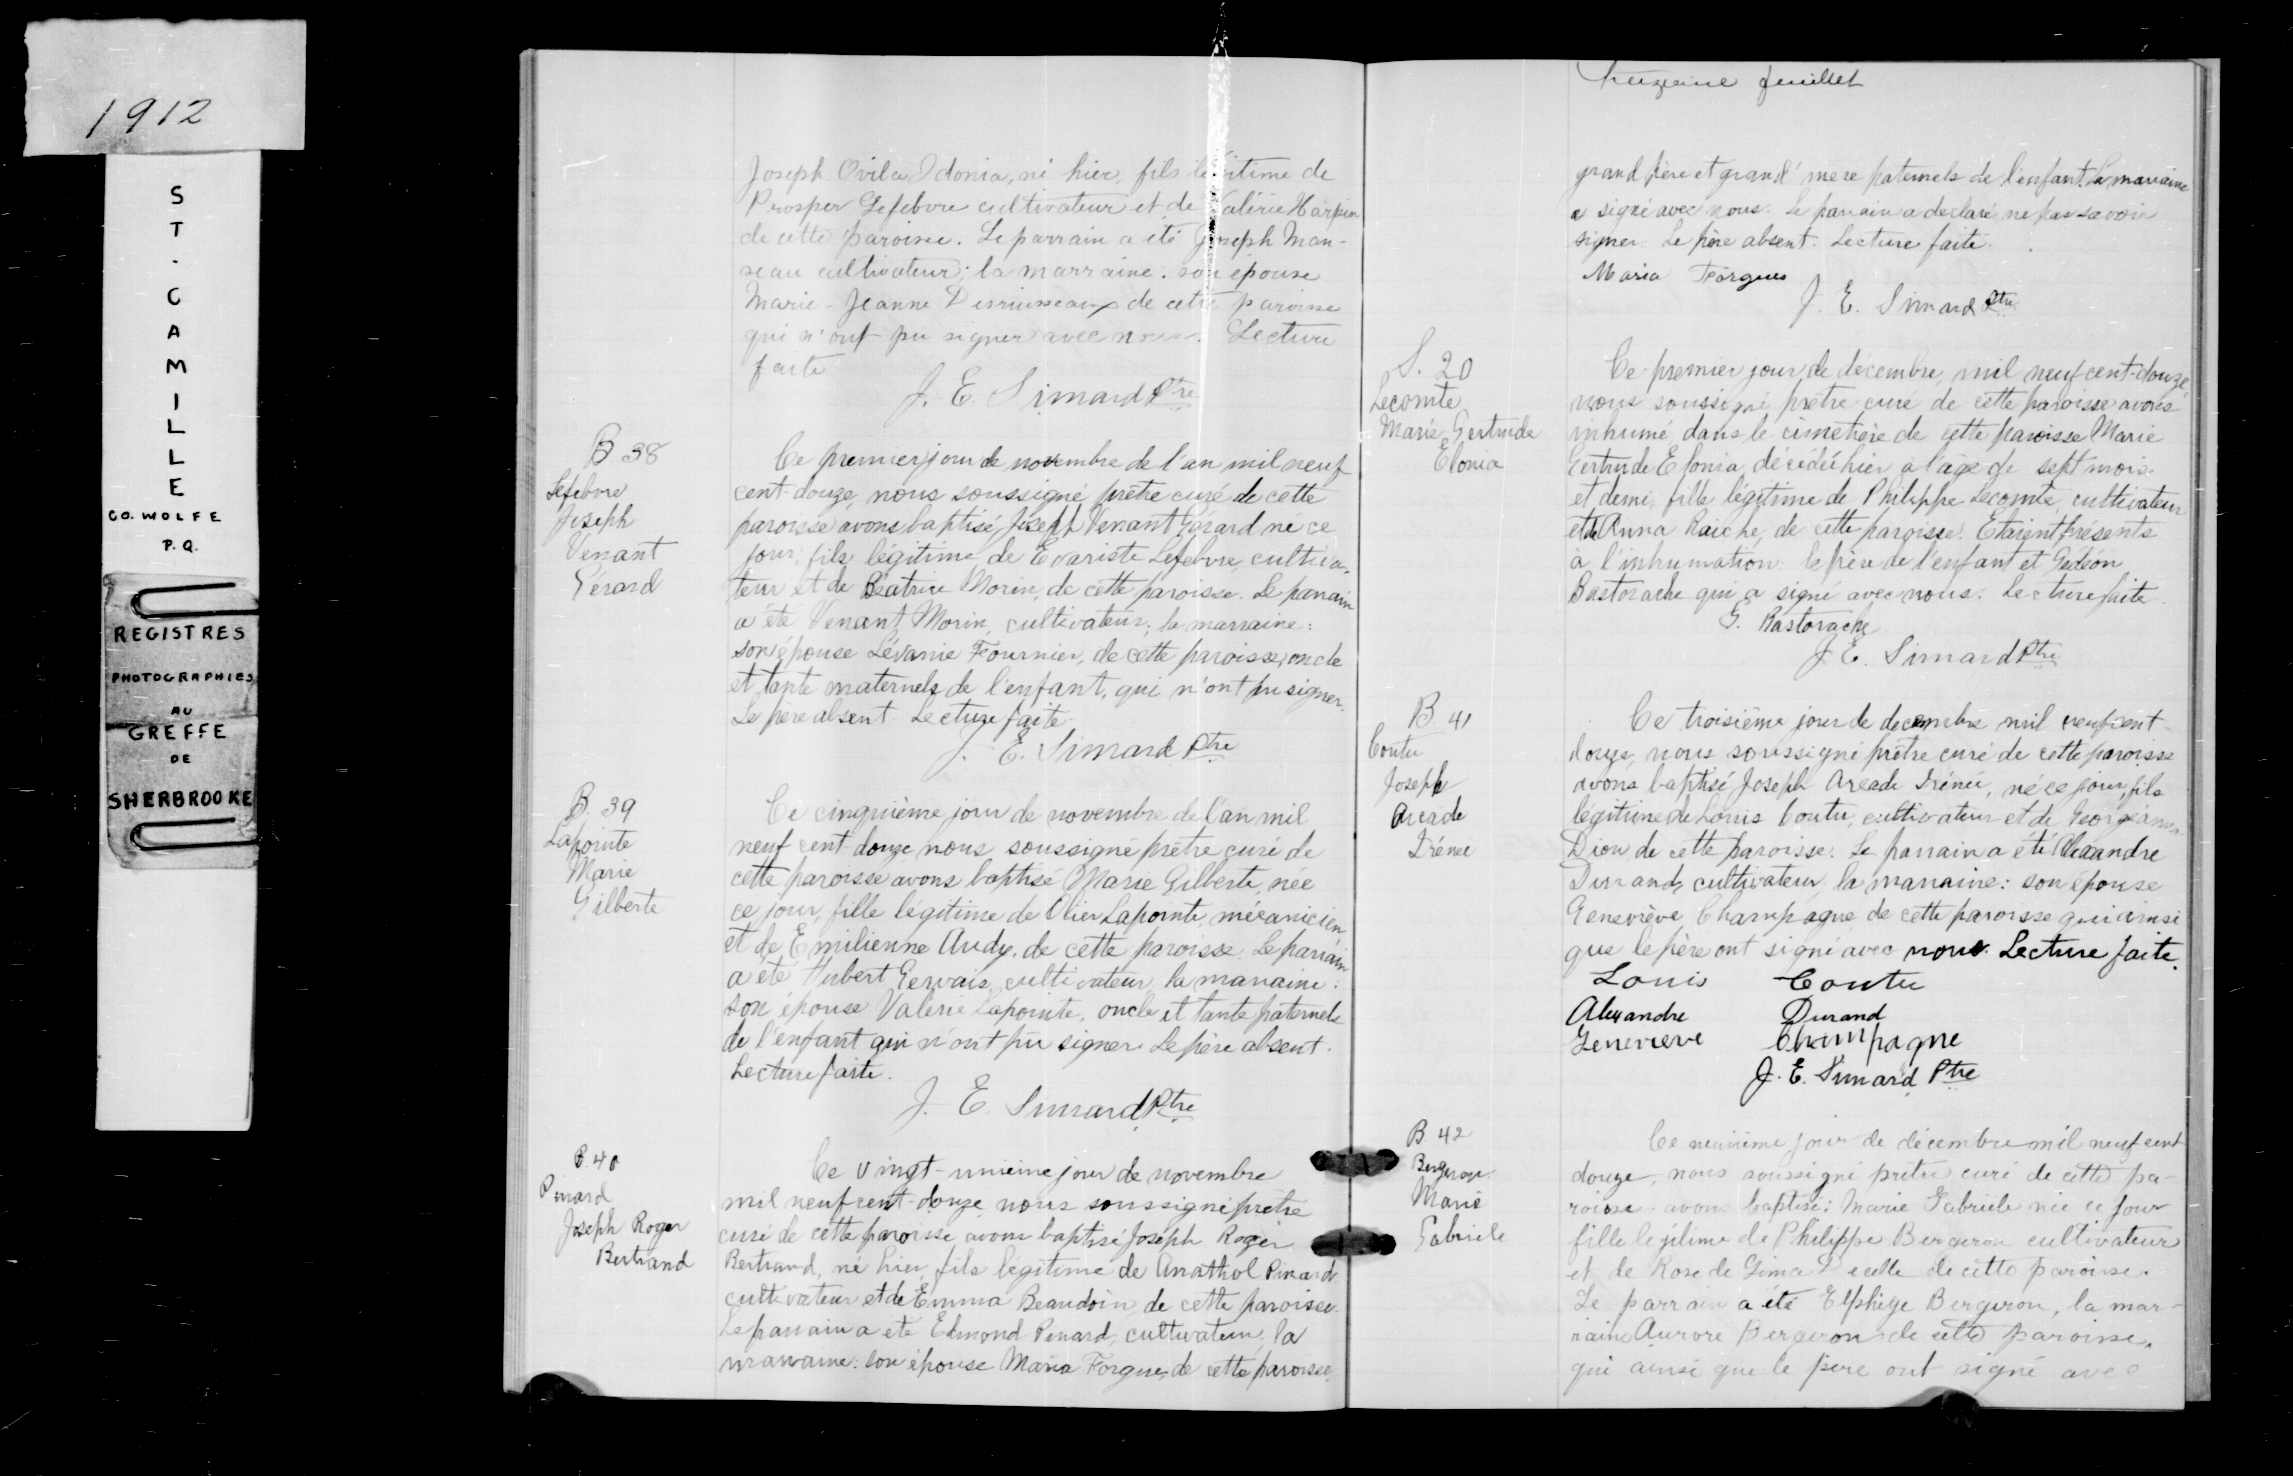 1912
ST. CAMILLE
CO. WOLFE
P.Q.
REGISTRES
PHOTOGRAPHIES
AU
GREFFE
DE
SHERBROOKE
Joseph Ovila Idonia, né hier, fils légitime de
Prosper Lefebvre cultivateur et de Valérie Harpin
de cette paroisse. Le parrain a été Joseph Man-
seau cultivateur; la marraine: son épouse
Marie-Jeanne Desruisseaux de cette paroisse
qui n'ont pu signer avec nous. Lecture
faite
J. E. Simard Ptre
B 38
Lefebvre
Joseph
Venant
Gérard
Ce premier jour de novembre de l'an mil neuf
cent-douze, nous soussigné prêtre curé de cette
paroisse avons baptisé Joseph Venant Gérard né ce
jour, fils légitime de Evariste Lefebvre, cultiva-
teur et de Béatrice Morin, de cette paroisse. Le parrain
a été Venant Morin, cultivateur; la marraine:
son épouse Lévanie Fournier, de cette paroisse, oncle
et tante maternels de l'enfant, qui n'ont pu signer.
Le père absent. Lecture faite.
J. E. Simard Ptre
B. 39
Lapointe
Marie
Gilberte
Ce cinquième jour de novembre de l'an mil
neuf cent douze nous soussigné prêtre curé de
cette paroisse avons baptisé Marie Gilberte, née
ce jour, fille légitime de Olier Lapointe, mécanicien
et de Emilienne Audy, de cette paroisse. Le parrain
a été Hubert Gervais, cultivateur, la marraine:
son épouse Valérie Lapointe, oncle et tante paternels
de l'enfant qui n'ont pu signer. Le père absent.
Lecture faite.
J. E. Simard Ptre
B 40
Pinard
Joseph Roger
Bertrand
Ce vingt-unième jour de novembre
mil neuf cent-douze nous soussigné prêtre
curé de cette paroisse avons baptisé Joseph Roger
Bertrand, né hier, fils légitime de Anathol Pinard,
cultivateur et de Emma Beaudoin, de cette paroisse.
Le parrain a été Edmond Pinard, cultivateur, la
marraine: son épouse Maria Forgues, de cette paroisse,
Treizième feuillet
grand père et grand' mère paternels de l'enfant. La marraine
a signé avec nous. Le parrain a déclaré ne pas savoir
signer. Le père absent. Lecture faite.
Maria Forgues
J. E. Simard Ptre
S. 20
Lecomte
Marie Gertrude
Elonia
Ce premier jour de décembre, mil neuf cent-douze,
nous soussigné, prêtre curé de cette paroisse avons
inhumé, dans le cimetière de cette paroisse Marie
Gertrude Elonia, décédée hier, à l'âge de sept mois
et demi, fille légitime de Philippe Lecomte, cultivateur
et de Anna Raiche, de cette paroisse. Etaient présents
à l'inhumation: le père de l'enfant et Gédéon
Bastorache qui a signé avec nous. Lecture faite.
G. Bastorache
J. E. Simard Ptre
B 41
Coutu
Joseph
Arcade
Irénée
Ce troisième jour de decembre mil neuf cent
douze, nous soussigné prêtre curé de cette paroisse
avons baptisé Joseph Arcade Irénée, né ce jour, fils
légitime de Louis Coutu, cultivateur et de Georgianna
Dion de cette paroisse. Le parrain a été Alexandre
Durand, cultivateur, la marraine: son épouse
Geneviève Champagne de cette paroisse qui ainsi
que le père ont signé avec nous. Lecture faite.
Louis Coutu
Alexandre Durand
Genevieve Champagne
J. E. Simard Ptre
B 42
Bergeron
Marie
Gabriele
Ce neuvième jour de décembre mil neuf cent
douze, nous soussigné prêtre curé de cette pa-
roisse avons baptisé: Marie Gabriele née ce jour
fille légitime de Philippe Bergeron cultivateur
et de Rose de Lima de cette paroisse.
Le parrain a été Elphège Bergeron, la mar-
raine Aurore Bergeron de cette paroisse,
qui ainsi que le père ont signé avec